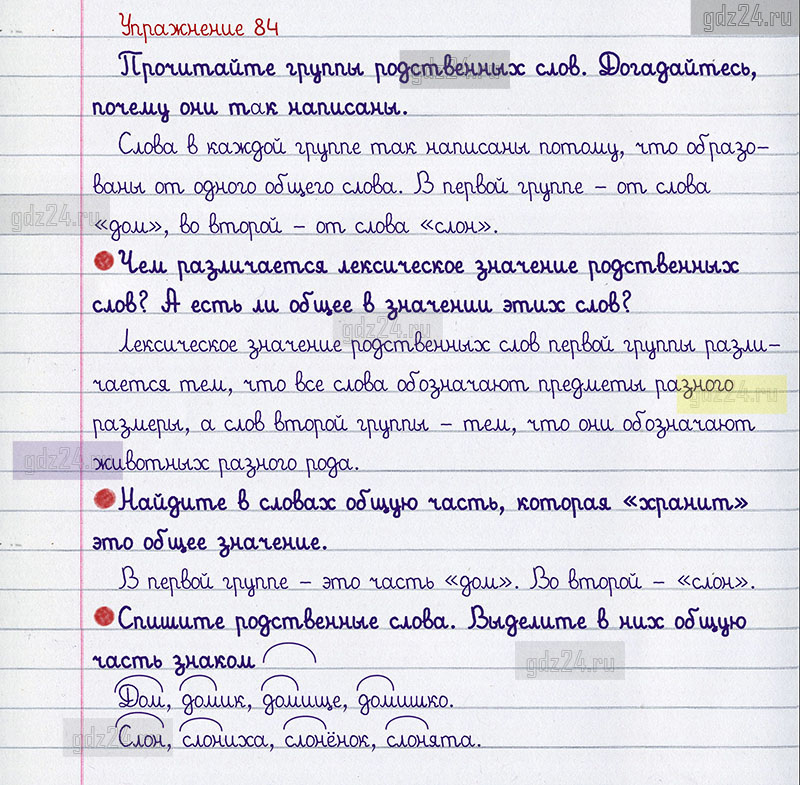 gdz24.ru
Упражнение 84
Прочитайте группы родственных слов. Догадайтесь,
gdz24.ru
почему они так написаны.
Слова в каждой группе так написаны потому, что образо-
ваны от одного общего слова. В первой группе – от слова
gdz24.ru
«дом», во второй – от слова «слон».
Чем различается лексическое значение родственных
слов? А есть ли общее в значении этих слов?
gdz24.ru
Лексическое значение родственных слов первой группы разли-
чается тем, что все слова обозначают предметы разного
gdz24.ru
размеры, а слов второй группы – тем, что они обозначают
gdz24.ru
животных разного рода.
Найдите в словах общую часть, которая «хранит»
это общее значение.
В первой группе – это часть «дом». Во второй – «слон».
Спишите родственные слова. Выделите в них общую
часть знаком
gdz24.ru
Дом, домик, домище, домишко.
gdz24.ru
Слон, слониха, слонёнок, слонята.